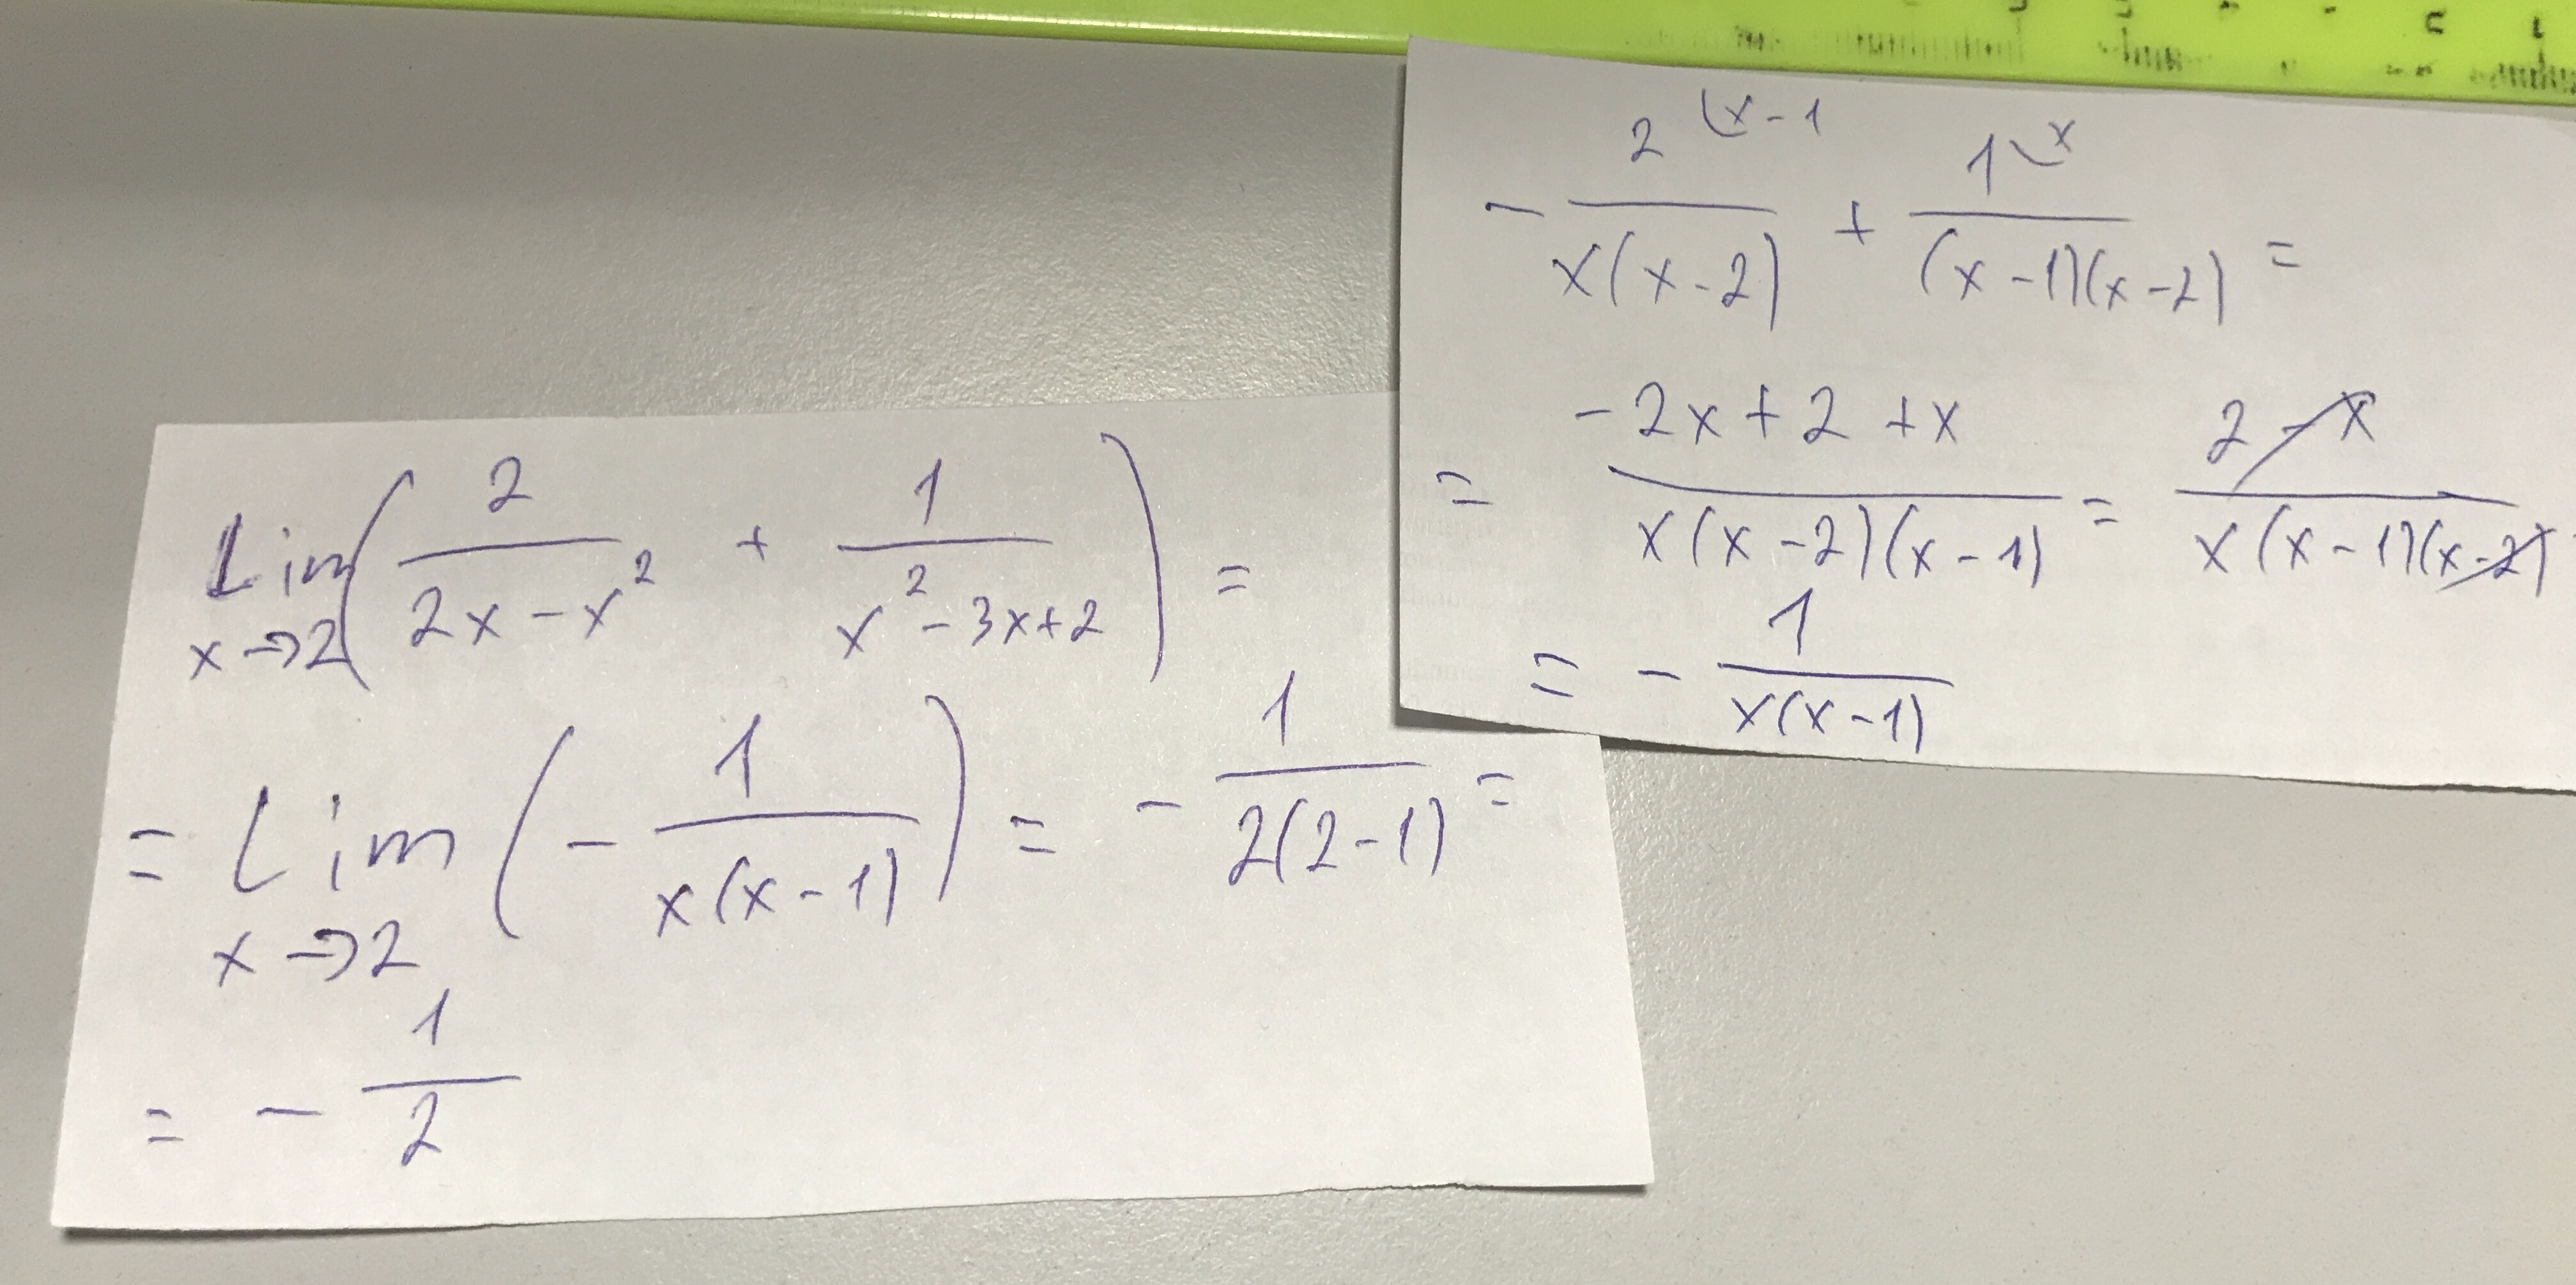 Lim x→2 ( 2/(2x - x²) + 1/(x² - 3x + 2) ) =
= Lim x→2 ( - 1/(x(x-1)) ) = - 1/(2(2-1)) =
= - 1/2
- 2 (x-1 / (x(x-2)) + 1 (x / ((x-1)(x-2)) =
= (-2x + 2 + x)/(x(x-2)(x-1)) = (2 - x)/(x(x-1)(x-2))
= - 1/(x(x-1))